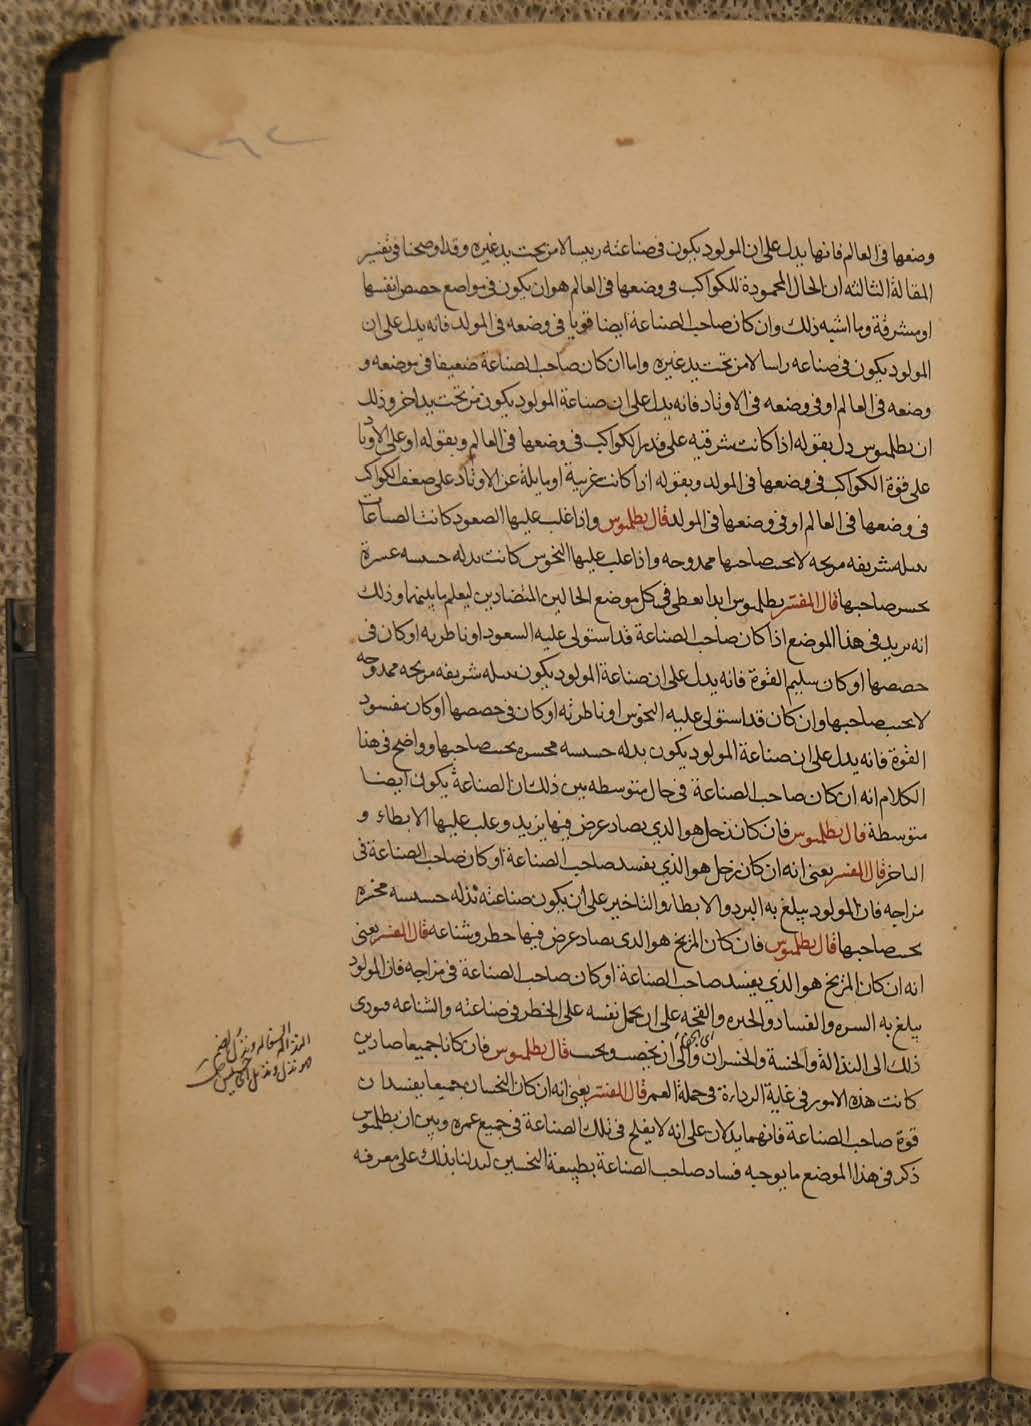 وضعها فى العالم فانها يدل على ان المولود يكون فى صناعته رييسا لا من تحت يد غيره وقد اوضحنا فى تفسير
المقالة الثالثه ان الحال المحمودة للكواكب فى وضعها فى العالم هو ان يكون فى مواضع حصص انفسها
او مشرقة وما اشبه ذلك وان كان صاحب الصناعة ايضا قويا فى وضعه فى المولد فانه يدل على ان
المولود يكون فى صناعه راسا لا من تحت يد غيره واما ان كان صاحب الصناعة ضعيفا فى موضعه و
وضعه فى العالم او فى وضعه فى الاوتاد فانه يدل على ان صناعة المولود يكون من تحت يد اخر وذلك
ان بطلميوس دل بقوله اذا كانت شرقيه على قدر الكواكب فى وضعها فى العالم وبقوله او على الاوتاد
على قوة الكواكب فى وضعها فى المولد وبقوله اذا كانت غربية او مايلة عن الاوتاد على ضعف الكواكب
فى وضعها فى العالم او فى وضعها فى المولد قال بطلميوس واذا غلب عليها الصعود كانت الصناعات
شريفه مربحه لا صاحبها ممدوحه واذا غلب عليها النحوس كانت حسسه عسرة
صاحبها قال المفسر بطلميوس ابدا يعطى فى كل موضع الحالين المتضادين ليعلم ما بينهما وذلك
انه يريد فى هذا الموضع اذا كان صاحب الصناعة قد استولى عليه السعود او ناظر به او كان فى
حصصها او كان سليم القوة فانه يدل على ان صناعة المولود يكون شريفه مربحه ممدوحه
لا صاحبها وان كان قد استولى عليه النحوس او ناظر ته او كان فى حصصها او كان مفسود
القوة فانه يدل على ان صناعة المولود يكون حسسه صاحبها وواضح فى هذا
الكلام انه ان كان صاحب الصناعة فى حال متوسطه بين ذلك ان الصناعة يكون ايضا
متوسطة قال بطلميوس فان كان زحل هو الذي يضاد عرض فيها وغلب عليها الابطاء و
التاخر قال المفسر يعنى انه ان كان زحل هو الذي يفسد صاحب الصناعة او كان صاحب الصناعة فى
مزاجه فان المولود يبلغ به البرد والابطاء والتاخير على ان يكون صناعته حسسه
صاحبها قال بطلميوس فان كان المريخ هو الذى يضاد عرض فيها خطر وشناعه قال المفسر يعنى
انه ان كان المريخ هو الذي يفسد صاحب الصناعة او كان صاحب الصناعة فى مزاجه فان المولود
يبلغ به والفساد على ان يحمل نفسه على الخطر فى صناعته والشناعه
ذلك الى النذالة والخسة والخسران والى ان قال بطلميوس فان كانا جميعا صادين
كانت هذه الامور فى غاية الرداءة فى جملة العمر قال المفسر يعنى انه ان كان النحسان جميعا يفسدان
قوة صاحب الصناعة فانهما يدلان على انه لا يفلح فى تلك الصناعة فى جميع عمره وبين ان بطلميوس
ذكر فى هذا الموضع ما يوجبه فساد صاحب الصناعة بطبيعة النحسين ليدلنا بذلك على معرفه